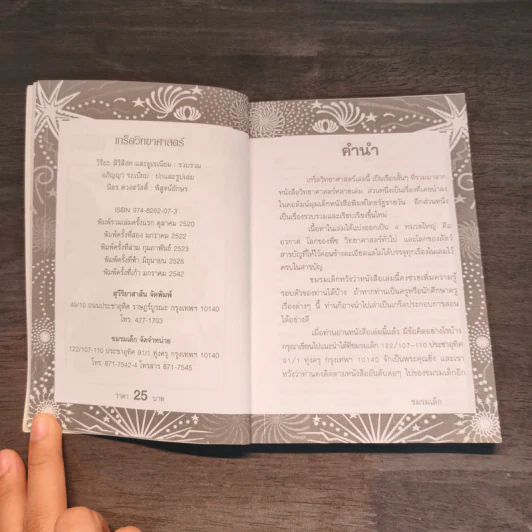 เกร็ดวิทยาศาสตร์
วิริยะ สิริสิงห และยูเรเนียม : รวบรวม
อภิญญา ระเบียบ : ปกและรูปเล่ม
นิตร ดวงสวัสดิ์ : พิสูจน์อักษร
ISBN 974-8262-07-3
พิมพ์รวมเล่มครั้งแรก ตุลาคม 2520
พิมพ์ครั้งที่สอง มกราคม 2522
พิมพ์ครั้งที่สาม กุมภาพันธ์ 2523
พิมพ์ครั้งที่ห้า มิถุนายน 2525
พิมพ์ครั้งที่เก้า มกราคม 2542
สุวีริยาสาส์น จัดพิมพ์
49/10 ถนนประชาอุทิศ ราษฎร์บูรณะ กรุงเทพฯ 10140
โทร. 427-1703
ชมรมเด็ก จัดจำหน่าย
122/107-110 ประชาอุทิศ 91/1 ทุ่งครุ กรุงเทพฯ 10140
โทร. 871-7542-4 โทรสาร 871-7545
ราคา 25 บาท
คำนำ
เกร็ดวิทยาศาสตร์เล่มนี้ เป็นเรื่องสั้นๆ ที่รวมมาจาก
หนังสือวิทยาศาสตร์หลายเล่ม ส่วนหนึ่งเป็นเรื่องที่เคยนำลง
ในคอลัมน์มุมเด็กหนังสือพิมพ์ไทยรัฐรายวัน อีกส่วนหนึ่ง
เป็นเรื่องรวบรวมและเรียบเรียงขึ้นใหม่
เนื้อหาในเล่มได้แบ่งออกเป็น 4 หมวดใหญ่ คือ
อวกาศ โลกของพืช วิทยาศาสตร์ทั่วไป และโลกของสัตว์
สารบัญที่ให้ไว้ค่อนข้างละเอียดแต่ไม่ได้บรรจุทุกเรื่องในเล่มไว้
ครบในสารบัญ
ชมรมเด็กหวังว่าหนังสือเล่มนี้คงช่วยเพิ่มความรู้
รอบตัวของท่านได้บ้าง ถ้าหากท่านเป็นครูหรือนักศึกษาครู
เรื่องต่างๆ นี้ ท่านก็อาจนำไปเล่าเป็นเกร็ดประกอบการสอน
ได้อย่างดี
เมื่อท่านอ่านหนังสือเล่มนี้แล้ว มีข้อคิดอย่างไรบ้าง
กรุณาเขียนไปแนะนำได้ที่ชมรมเด็ก 122/107-110 ประชาอุทิศ
91/1 ทุ่งครุ กรุงเทพฯ 10140 จักเป็นพระคุณยิ่ง และเรา
หวังว่าท่านคงติดตามหนังสืออันดับต่อๆ ไปของชมรมเด็กอีก
ชมรมเด็ก